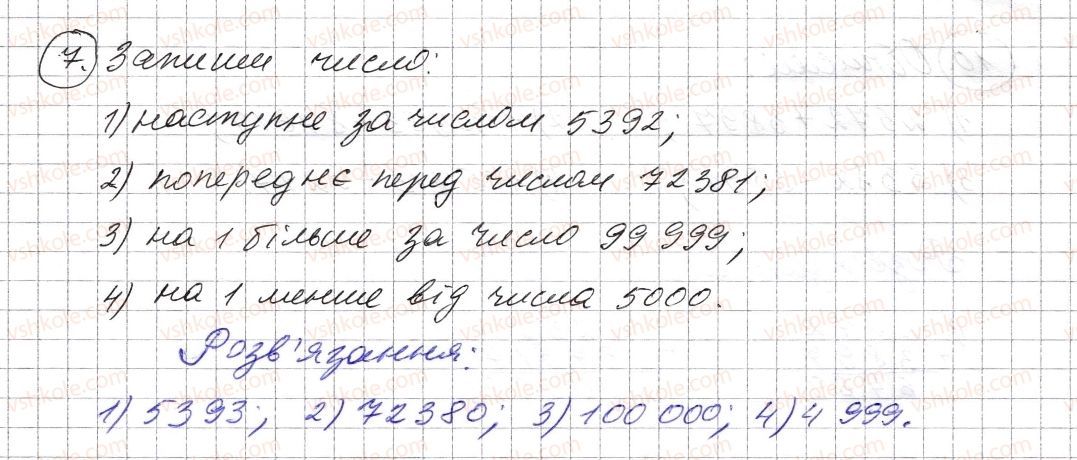 7. Запиши число:
1) наступне за числом 5392;
2) попереднє перед числом 72381;
3) на 1 більше за число 99 999;
4) на 1 менше від числа 5000.
Розв'язання:
1) 5393; 2) 72380; 3) 100 000; 4) 4 999.
vshkole.com